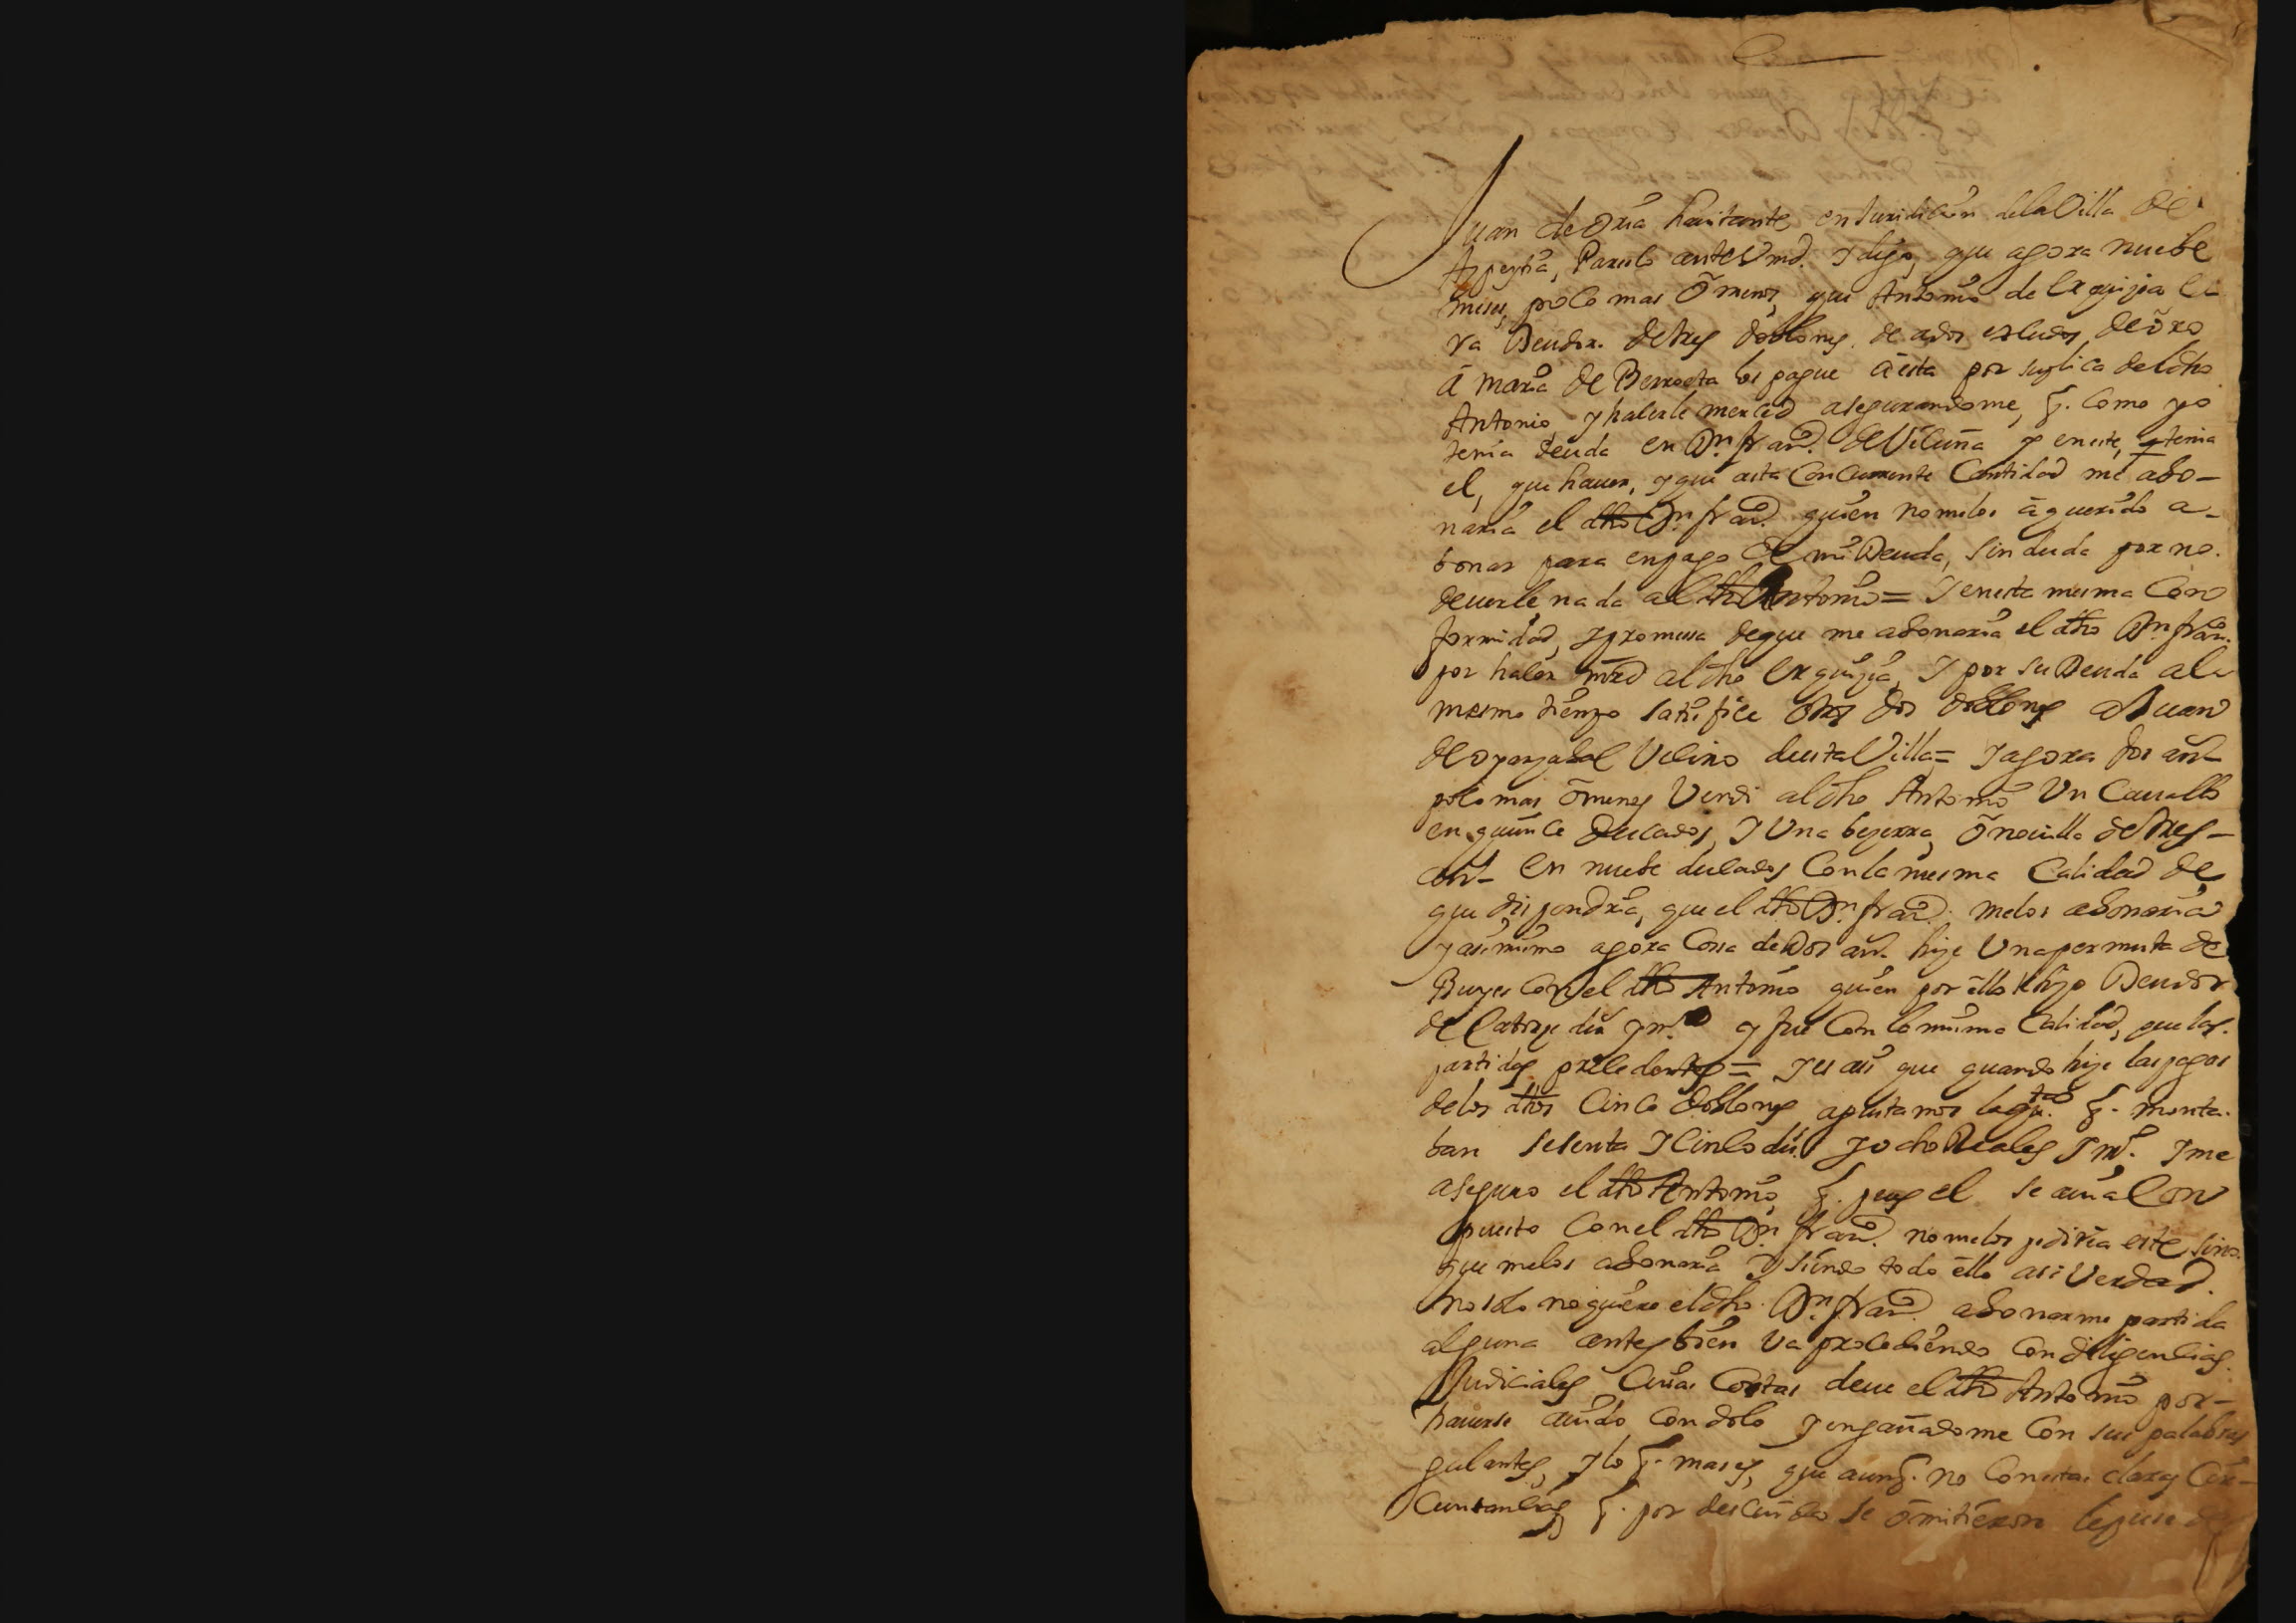 Juan de Oria havitante en Juridicion dela Villa de
Azpeytia, Paresco ante Vmd. Y digo, que agora nuebe
meses, poco mas ô menos, que Antonio de Urquijia e
ra Deudor. de tres doblones. de ados escudos de ôro
â Maria de Berroeta los pague âesta por suplica deldho
Antonio, y hacerle merced asegurandome, q. Como yo
tenia deuda en Dn. franco. de Vicuña y eneste, tenia
el, que haver, y que asta Concurrente Cantidad me abo-
naria el dho Dn. franco. quien nomelos â querido a-
bonar para enpago de mi Deuda, sin duda por no.
deverle nada al dho Antonio = Y enesta mesma Con
formidad, y promessa deque me abonaria el dho Dn. franco.
por hacer mrd al dho Urquijia, Y por su Deuda ale
mesmo tiempo satisfice otros dos doblones a Juan
de Oyarzabal Vecino destaVilla = Y agora dos añs
poco mas ômenos Vendi aldho Antonio Un Cavallo
en quinze Ducados, Y Una bezerra, ônovilla de tres-
añs- en nuebe ducados Conla mesma Calidad de
que dispondria, que el dho Dn. franco. melos abonaria
y asimismo agora Cosa de Dos añs. hize Una permuta de
Bueyes Con el dho Antonio quien por ello se hizo Deudor
de Catorze ds. y mo. y fue Con la misma Calidad, que las.
partidas precedentes = Y es asi que quando hize las pagas
delos dhos Cinco doblones ajustamos laqta. q. monta-
ban sesenta Y Cinco ds. Y ocho Reales Y mo. Y me
aseguro el dho Antonio, q. pues el se avia Con
puesto Con el dho Dn. franco. nomelos pediria este, sino.
que melos abonaria Y siendo todo ello asi Verdad.
no solo noquiere eldho. Dn. franco. abonarme partida
alguna antes bien Va procediendo Con diligencias.
Judiciales, Cuias Costas deve el dho Antonio por-
haverse avido Con dolo Y engañadome Con sus palabras
galantes, Y lo q. mas es, que aunq. no Con estas claras Cir-
cunstancias, q. por descuido se ômitieron le puse de